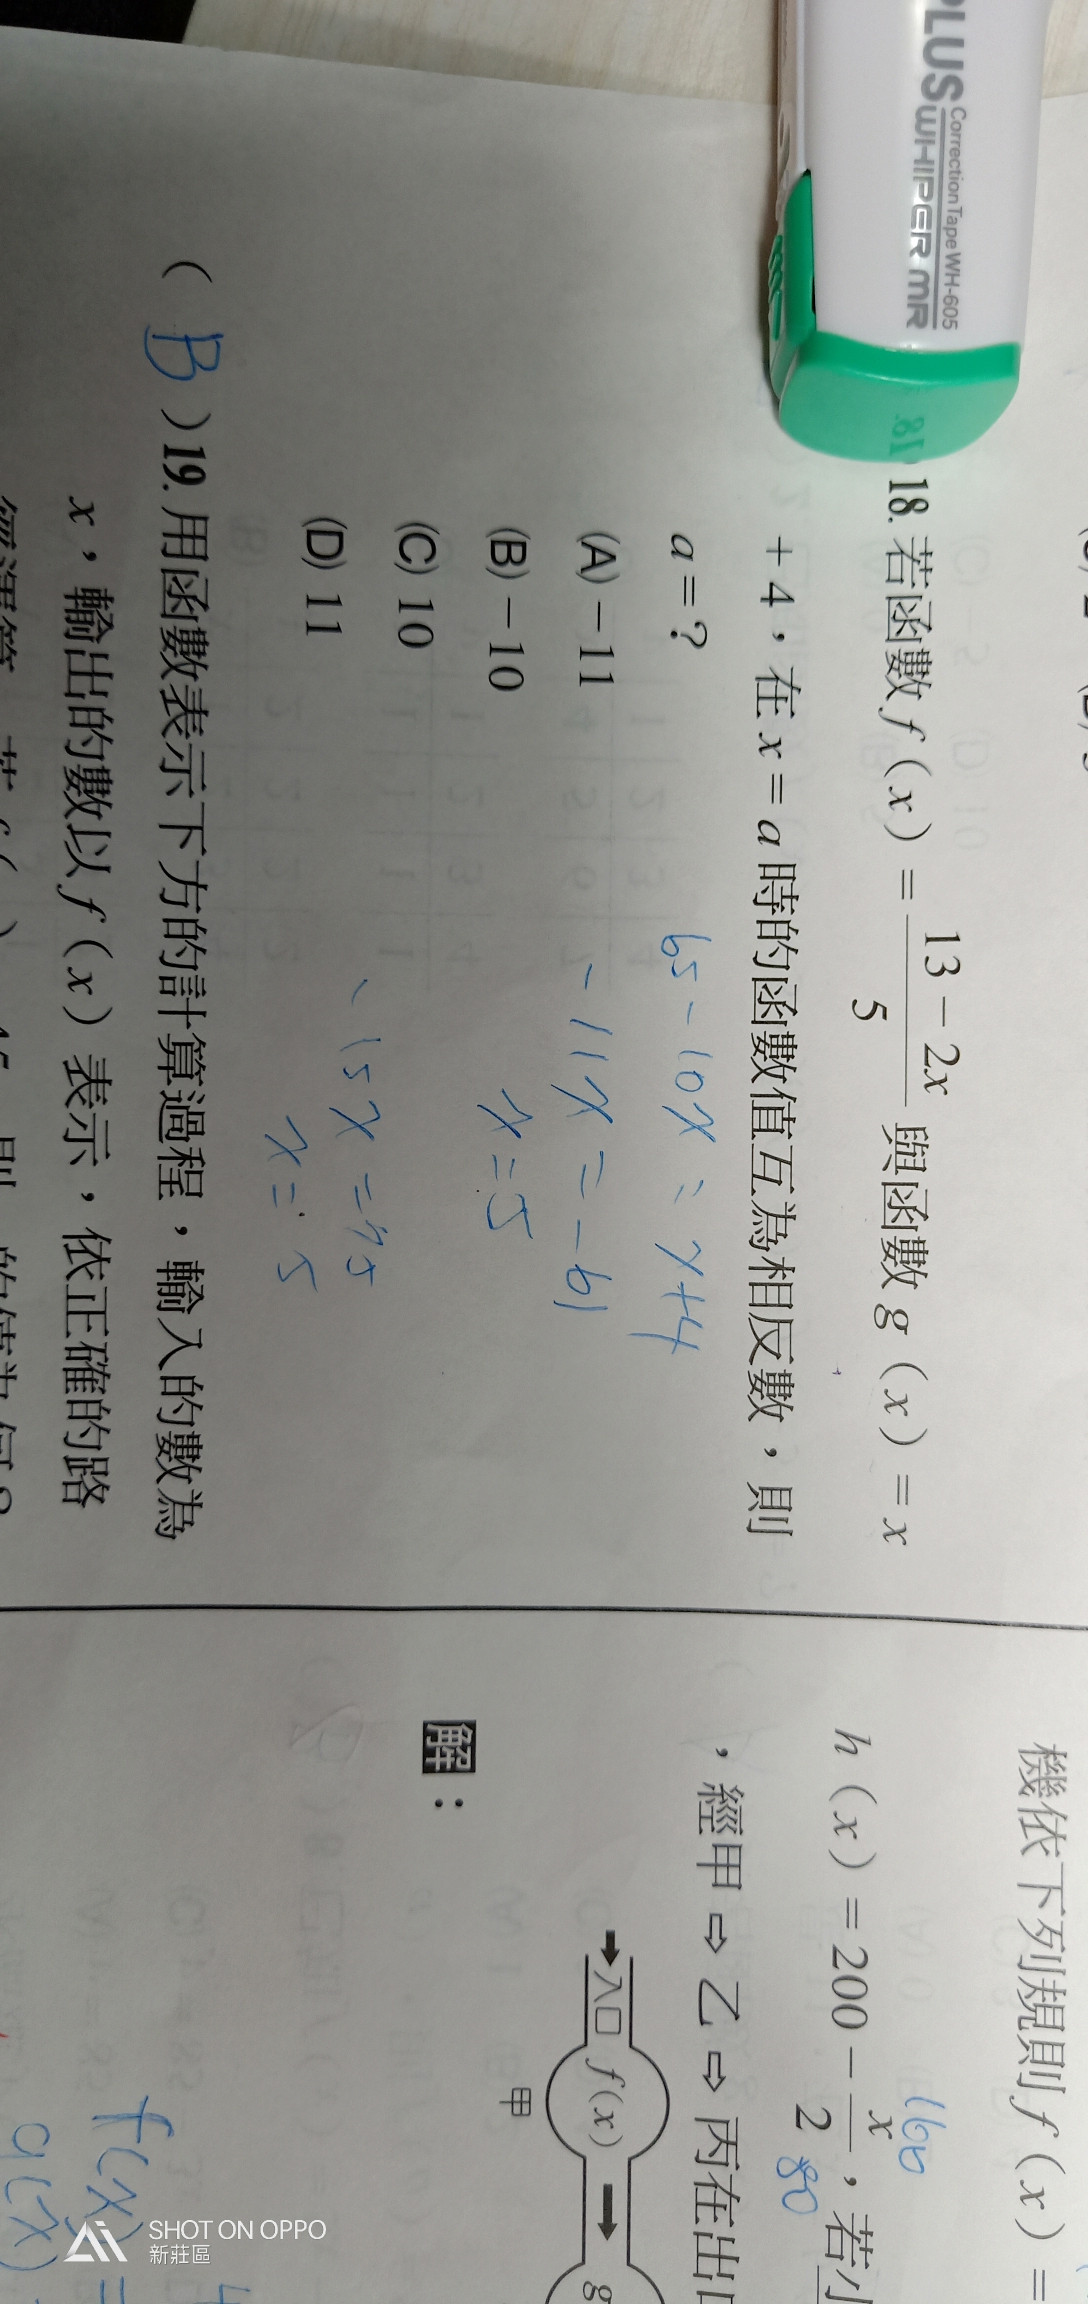 PLUS Correction Tape WH-605
WHIPER MR
18. 若函數 f(x) = \frac{13-2x}{5} 與函數 g(x) = x
+4,在 x = a 時的函數值互為相反數,則
a = ?
(A) -11
(B) -10
(C) 10
(D) 11
65 - 10x = x+4
-11x = -61
x = 5
-15x = 75
x = 5
( B ) 19. 用函數表示下方的計算過程,輸入的數為
x,輸出的數以 f(x) 表示,依正確的路
機依下列規則 f(x) =
160
h(x) = 200 - \frac{x}{2},若小
80
,經甲 ⇨ 乙 ⇨ 丙在出口
解:
入口 f(x)
甲
g
f(x) =
g(x)
SHOT ON OPPO
新莊區